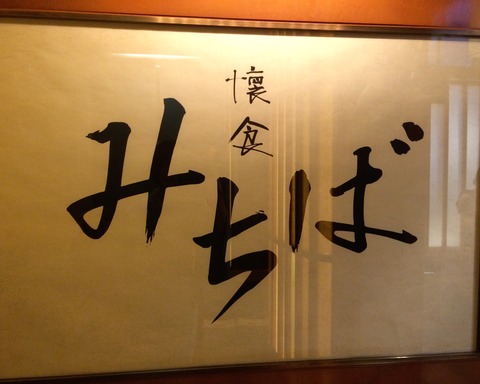 懐食
みちば